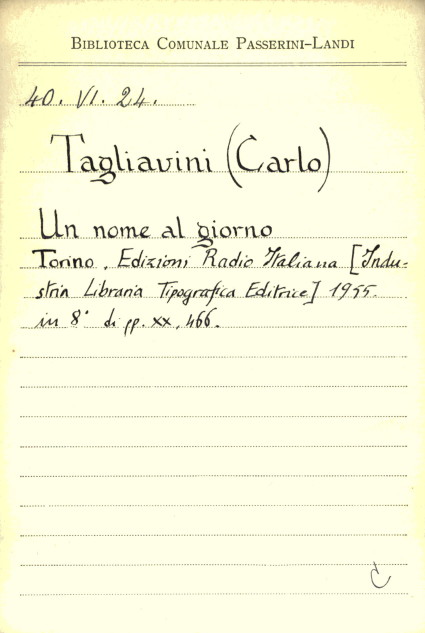 BIBLIOTECA COMUNALE PASSERINI-LANDI
40. VI. 24.
Tagliavini (Carlo)
Un nome al giorno
Torino, Edizioni Radio Italiana [Indu-
stria Libraria Tipografica Editrice] 1955.
in 8° di pp. xx, 466.
C